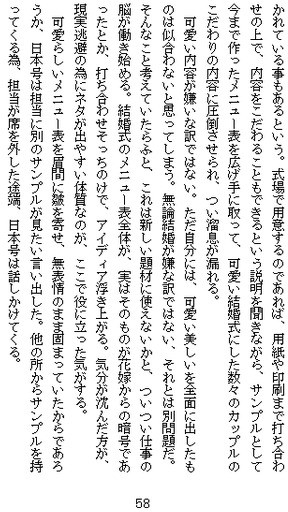 かれている事もあるという。式場で用意するのであれば、用紙や印刷まで打ち合わ
せの上で、内容をこだわることもできるという説明を聞きながら、サンプルとして
今まで作ったメニュー表を広げ手に取って、可愛い結婚式にした数々のカップルの
こだわりの内容に圧倒させられ、つい溜息が漏れる。
　可愛い内容が嫌いな訳ではない。ただ自分には、可愛い美しいを全面に出したも
のは似合わないと思ってしまう。無論結婚が嫌な訳ではない、それとは別問題だ。
そんなこと考えていたらふと、これは新しい題材に使えないかと、ついつい仕事の
脳が働き始める。結婚式のメニュー表全体が、実はそのものが花嫁からの暗号であ
ったとか、打ち合わせそっちのけで、アイディア浮き上がる。気分が沈んだ方が、
現実逃避の為にネタが出やすい体質なのが、ここで役に立った気がする。
　可愛らしいメニュー表を眉間に皺を寄せ、無表情のまま固まっていたからであろ
うか、日本号は担当に別のサンプルが見たい言い出した。他の所からサンプルを持
ってくる為、担当が席を外した途端、日本号は話しかけてくる。
58